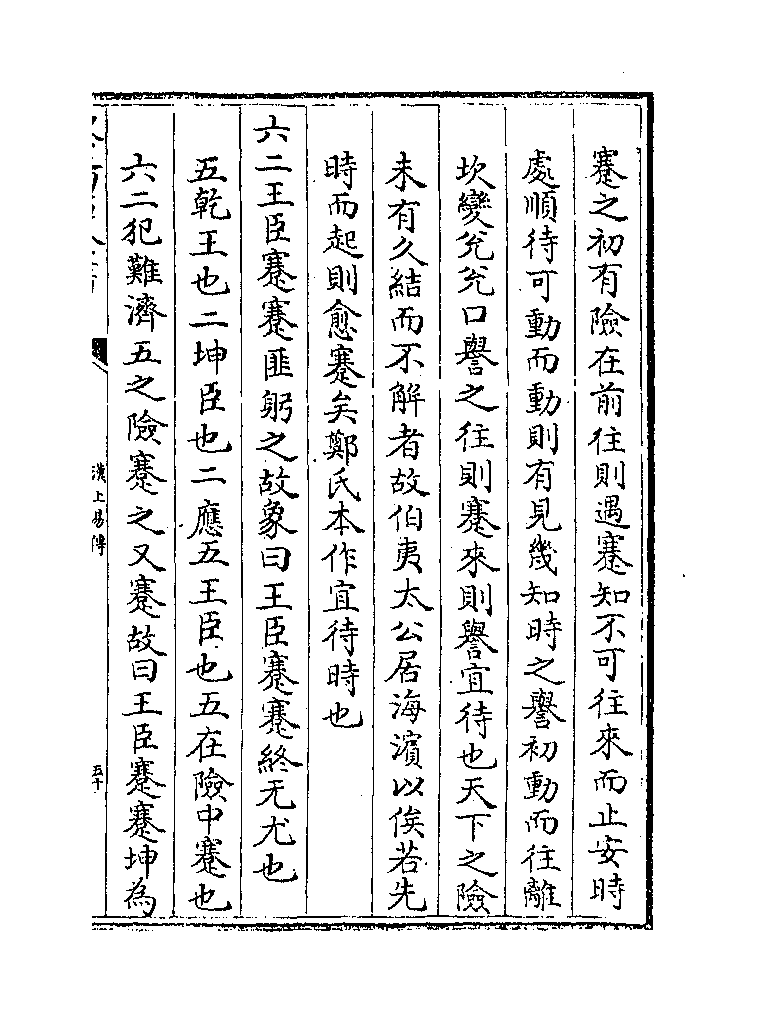 蹇之初有險在前往則遇蹇知不可往來而止安時
處順待可動而動則有見幾知時之譽初動而往離
坎變兊兊口譽之往則蹇來則譽宜待也天下之險
未有久結而不解者故伯夷太公居海濵以俟若先
時而起則愈蹇矣鄭氏本作宜待時也
六二王臣蹇蹇匪躬之故象曰王臣蹇蹇終无尤也
五乾王也二坤臣也二應五王臣也五在險中蹇也
六二犯難濟五之險蹇之又蹇故曰王臣蹇蹇坤為
漢上易傳
五十